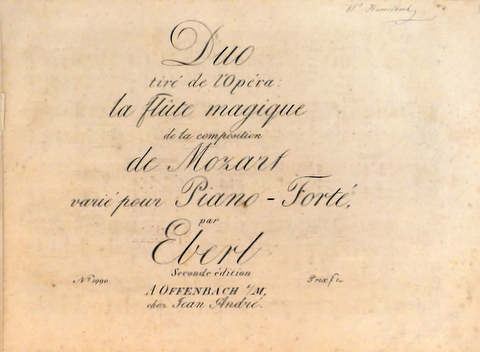 Duo
tiré de l'Opéra:
la flûte magique
de la composition
de Mozart
varié pour Piano-Forté,
par
Eberl
Seconde édition
Nº 1990. Prix f 1.
A OFFENBACH s/M,
chez Jean André.